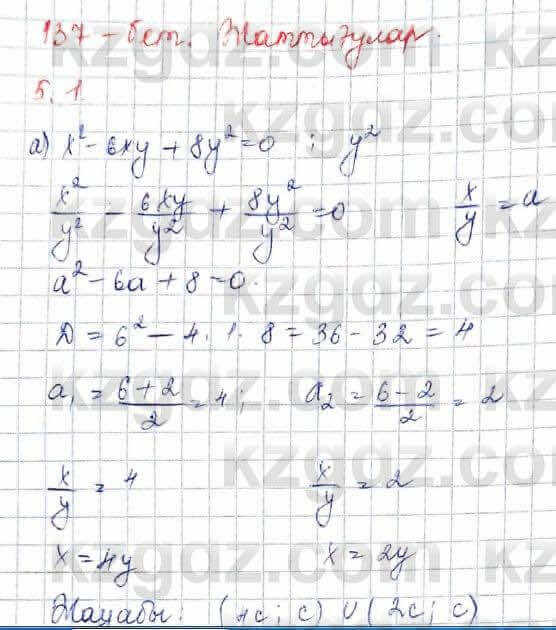 137 – бет. Жаттығулар.
5.1
а) x² - 6xy + 8y² = 0 ; y²
x²/y² - 6xy/y² + 8y²/y² = 0   x/y = a
a² - 6a + 8 = 0.
D = 6² - 4 · 1 · 8 = 36 - 32 = 4
a₁ = (6+2)/2 = 4;   a₂ = (6-2)/2 = 2
x/y = 4   x/y = 2
x = 4y   x = 2y
Жауабы: (4c; c) ∪ (2c; c)
kzgdz.com